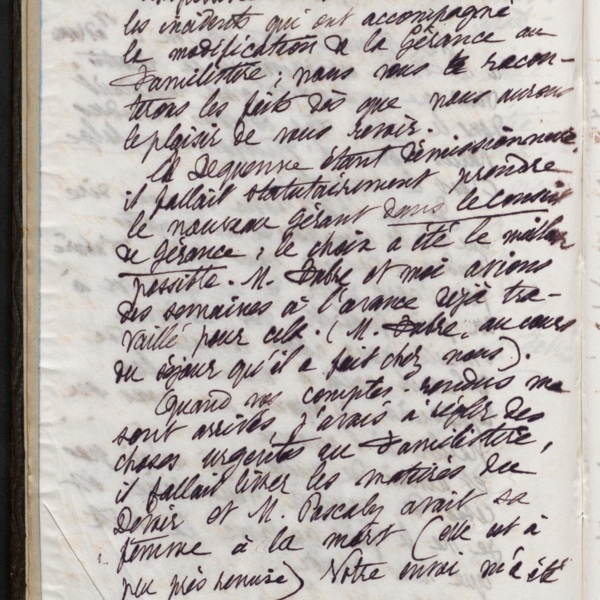 les incidents qui ont accompagné
la modification de la Gérance au
Familistère ; nous vous le racon-
terons les faits dès que nous aurons
le plaisir de vous revoir.
M. Dequenne étant démissionnaire
il fallait statutairement prendre
le nouveau gérant dans le conseil
de Gérance ; le choix a été le meilleur
possible. M. Fabre et moi avions
des semaines à l'avance déjà tra-
vaillé pour cela. (M. Fabre, au cours
du séjour qu'il a fait chez nous).
Quand vos comptes-rendus me
sont arrivés j'avais à régler des
choses urgentes au Familistère,
il fallait livrer les matières du
Devoir et M. Pascaly avait sa
femme à la mort (elle est à
peu près remise) Votre envoi m'a été